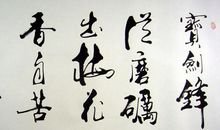 寶劍鋒
從磨礪
出梅花
香自苦